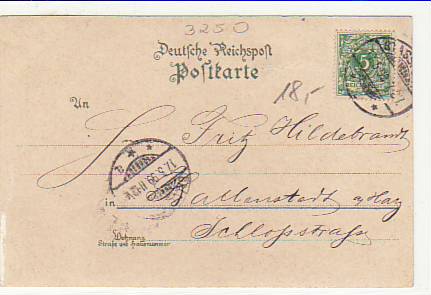 3250
Deutsche Reichspost
Postkarte
18,-
5
STASS
An
Fritz Hildebrandt
17.5.99 11-12V
in Ballenstedt a/Harz
Schloßstraße
Wohnung
Straße und Hausnummer